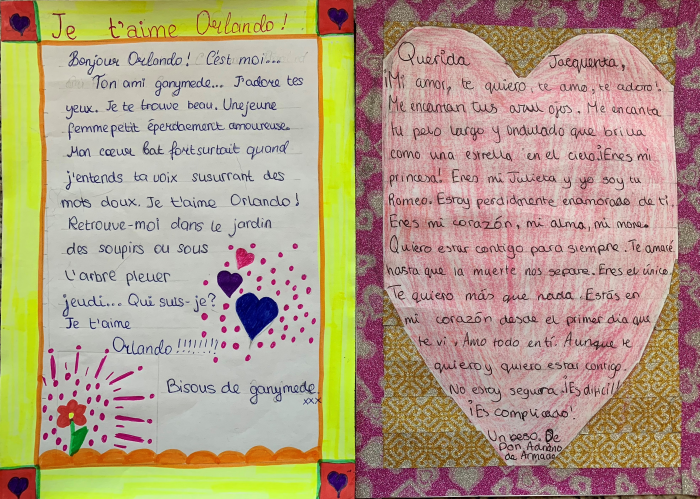 Je t'aime Orlando!
Bonjour Orlando! C'est moi...
Ton ami ganymede... J'adore tes
yeux. Je te trouve beau. Une jeune
femme petit éperdaement amoureuse.
Mon cœur bat fort surtait quand
j'entends ta voix susurrant des
mots doux. Je t'aime Orlando!
Retrouve-moi dans le jardin
des soupirs ou sous
l'arbre pleuer
jeudi... Qui suis-je?
Je t'aime
Orlando!!!!!!!!
Bisous de ganymede
xxx
Querida Jacquenta,
¡Mi amor, te quiero, te amo, te adoro!
Me encantan tus azul ojos. Me encanta
tu pelo largo y undulado que brilla
como una estrella en el cielo.¡Eres mi
princesa! Eres mi Julieta y yo soy tu
Romeo. Estoy perdidmente enamorado de ti.
Eres mi corazón, mi alma, mi more.
Quiero estar contigo para siempre. Te amaré
hasta que la muerte nos separe. Eres el único.
Te quiero más que nada. Estás en
mi corazón desde el primer dia que
te vi. Amo todo en ti. Aunque te
quiero y quiero estar contigo.
No estoy segura. ¡Es difícil!
¡Es complicado!
Un beso. De
Don Adriano
de Armado.